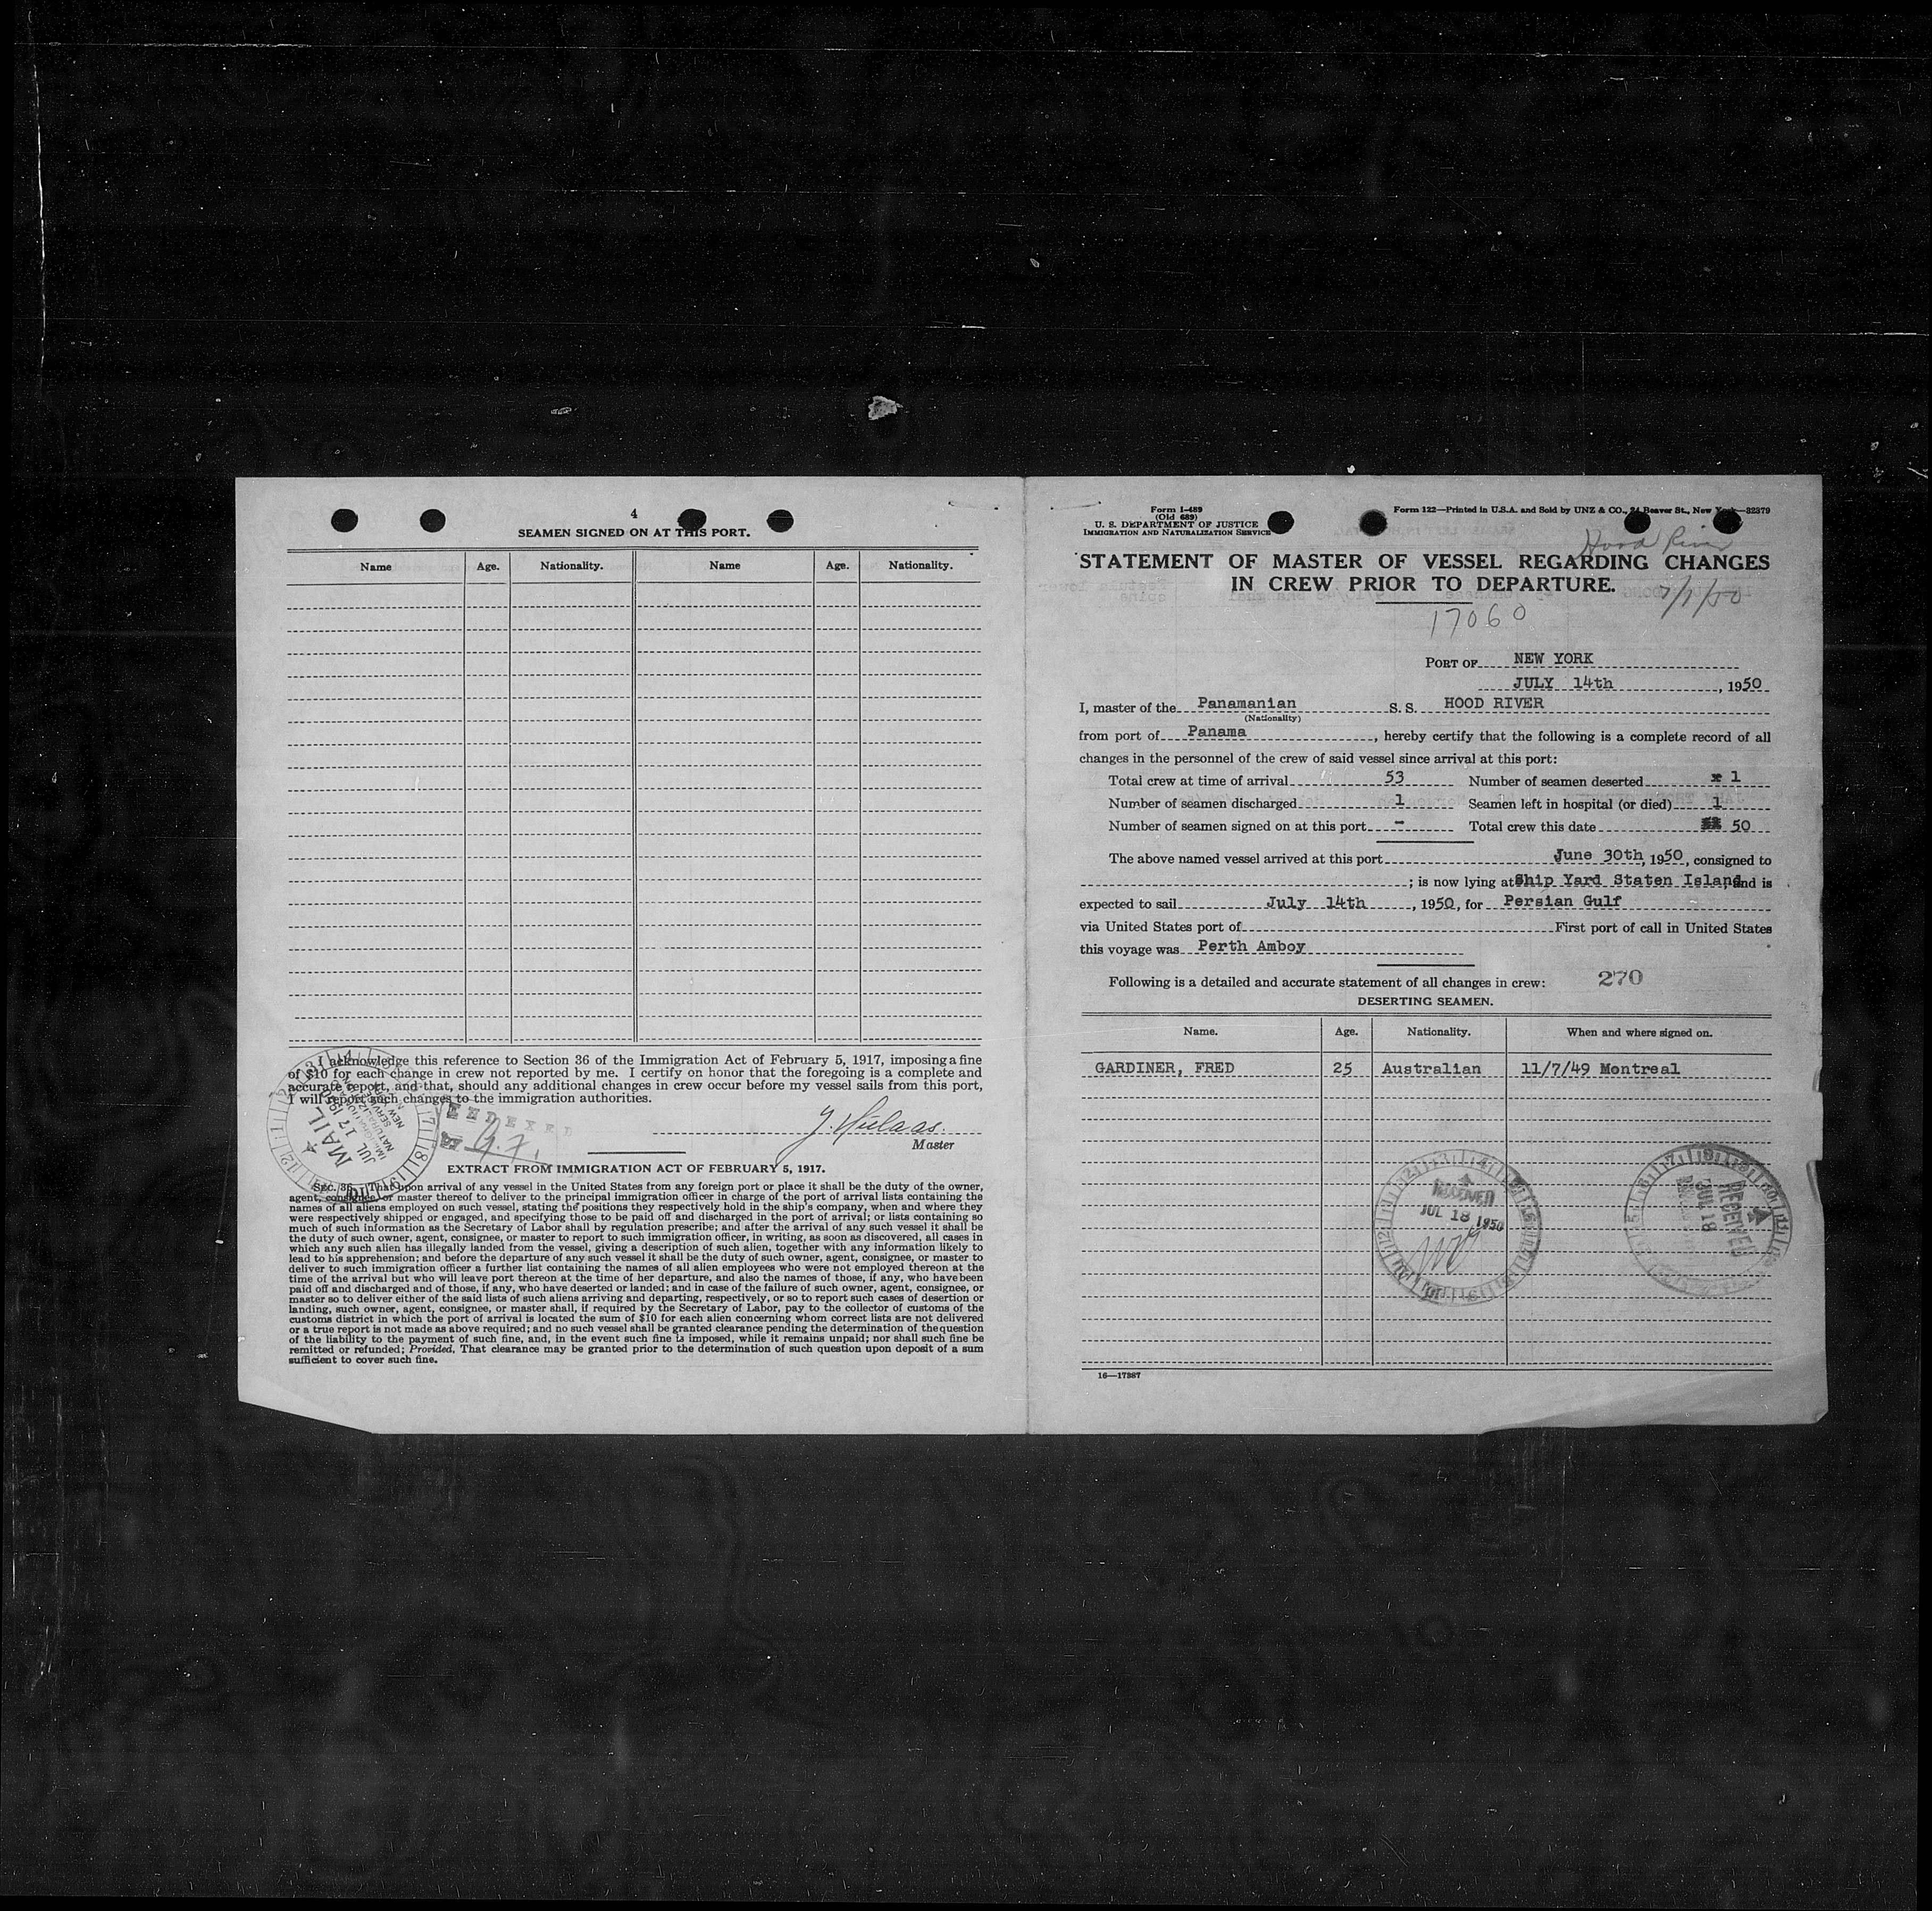 4
SEAMEN SIGNED ON AT THIS PORT.
Name Age. Nationality. Name Age. Nationality.
I acknowledge this reference to Section 36 of the Immigration Act of February 5, 1917, imposing a fine
of $10 for each change in crew not reported by me. I certify on honor that the foregoing is a complete and
accurate report, and that, should any additional changes in crew occur before my vessel sails from this port,
I will report such changes to the immigration authorities.
MAIL
JUL 17
INDEXED
Master
EXTRACT FROM IMMIGRATION ACT OF FEBRUARY 5, 1917.
Sec. 36. That upon arrival of any vessel in the United States from any foreign port or place it shall be the duty of the owner,
agent, consignee, or master thereof to deliver to the principal immigration officer in charge of the port of arrival lists containing the
names of all aliens employed on such vessel, stating the positions they respectively hold in the ship's company, when and where they
were respectively shipped or engaged, and specifying those to be paid off and discharged in the port of arrival; or lists containing so
much of such information as the Secretary of Labor shall by regulation prescribe; and after the arrival of any such vessel it shall be
the duty of such owner, agent, consignee, or master to report to such immigration officer, in writing, as soon as discovered, all cases in
which any such alien has illegally landed from the vessel, giving a description of such alien, together with any information likely to
lead to his apprehension; and before the departure of any such vessel it shall be the duty of such owner, agent, consignee, or master to
deliver to such immigration officer a further list containing the names of all alien employees who were not employed thereon at the
time of the arrival but who will leave port thereon at the time of her departure, and also the names of those, if any, who have been
paid off and discharged and of those, if any, who have deserted or landed; and in case of the failure of such owner, agent, consignee, or
master so to deliver either of the said lists of such aliens arriving and departing, respectively, or so to report such cases of desertion or
landing, such owner, agent, consignee, or master shall, if required by the Secretary of Labor, pay to the collector of customs of the
customs district in which the port of arrival is located the sum of $10 for each alien concerning whom correct lists are not delivered
or a true report is not made as above required; and no such vessel shall be granted clearance pending the determination of the question
of the liability to the payment of such fine, and, in the event such fine is imposed, while it remains unpaid; nor shall such fine be
remitted or refunded; Provided, That clearance may be granted prior to the determination of such question upon deposit of a sum
sufficient to cover such fine.
Form I-489
(Old 689)
U. S. DEPARTMENT OF JUSTICE
IMMIGRATION AND NATURALIZATION SERVICE
Form 122—Printed in U.S.A. and Sold by UNZ & CO., 24 Beaver St., New York—32379
Hood River
STATEMENT OF MASTER OF VESSEL REGARDING CHANGES
IN CREW PRIOR TO DEPARTURE.
7/1/50
17060
PORT OF NEW YORK
JULY 14th, 1950
I, master of the Panamanian S. S. HOOD RIVER
(Nationality)
from port of Panama, hereby certify that the following is a complete record of all
changes in the personnel of the crew of said vessel since arrival at this port:
Total crew at time of arrival 53 Number of seamen deserted 1
Number of seamen discharged 1 Seamen left in hospital (or died) 1
Number of seamen signed on at this port - Total crew this date 50
The above named vessel arrived at this port June 30th, 1950, consigned to
; is now lying at Ship Yard Staten Island, and is
expected to sail July 14th, 1950, for Persian Gulf
via United States port of First port of call in United States
this voyage was Perth Amboy
Following is a detailed and accurate statement of all changes in crew: 270
DESERTING SEAMEN.
Name. Age. Nationality. When and where signed on.
GARDINER, FRED 25 Australian 11/7/49 Montreal
RECEIVED
JUL 18 1950
RECEIVED
JUL 18
16—17387